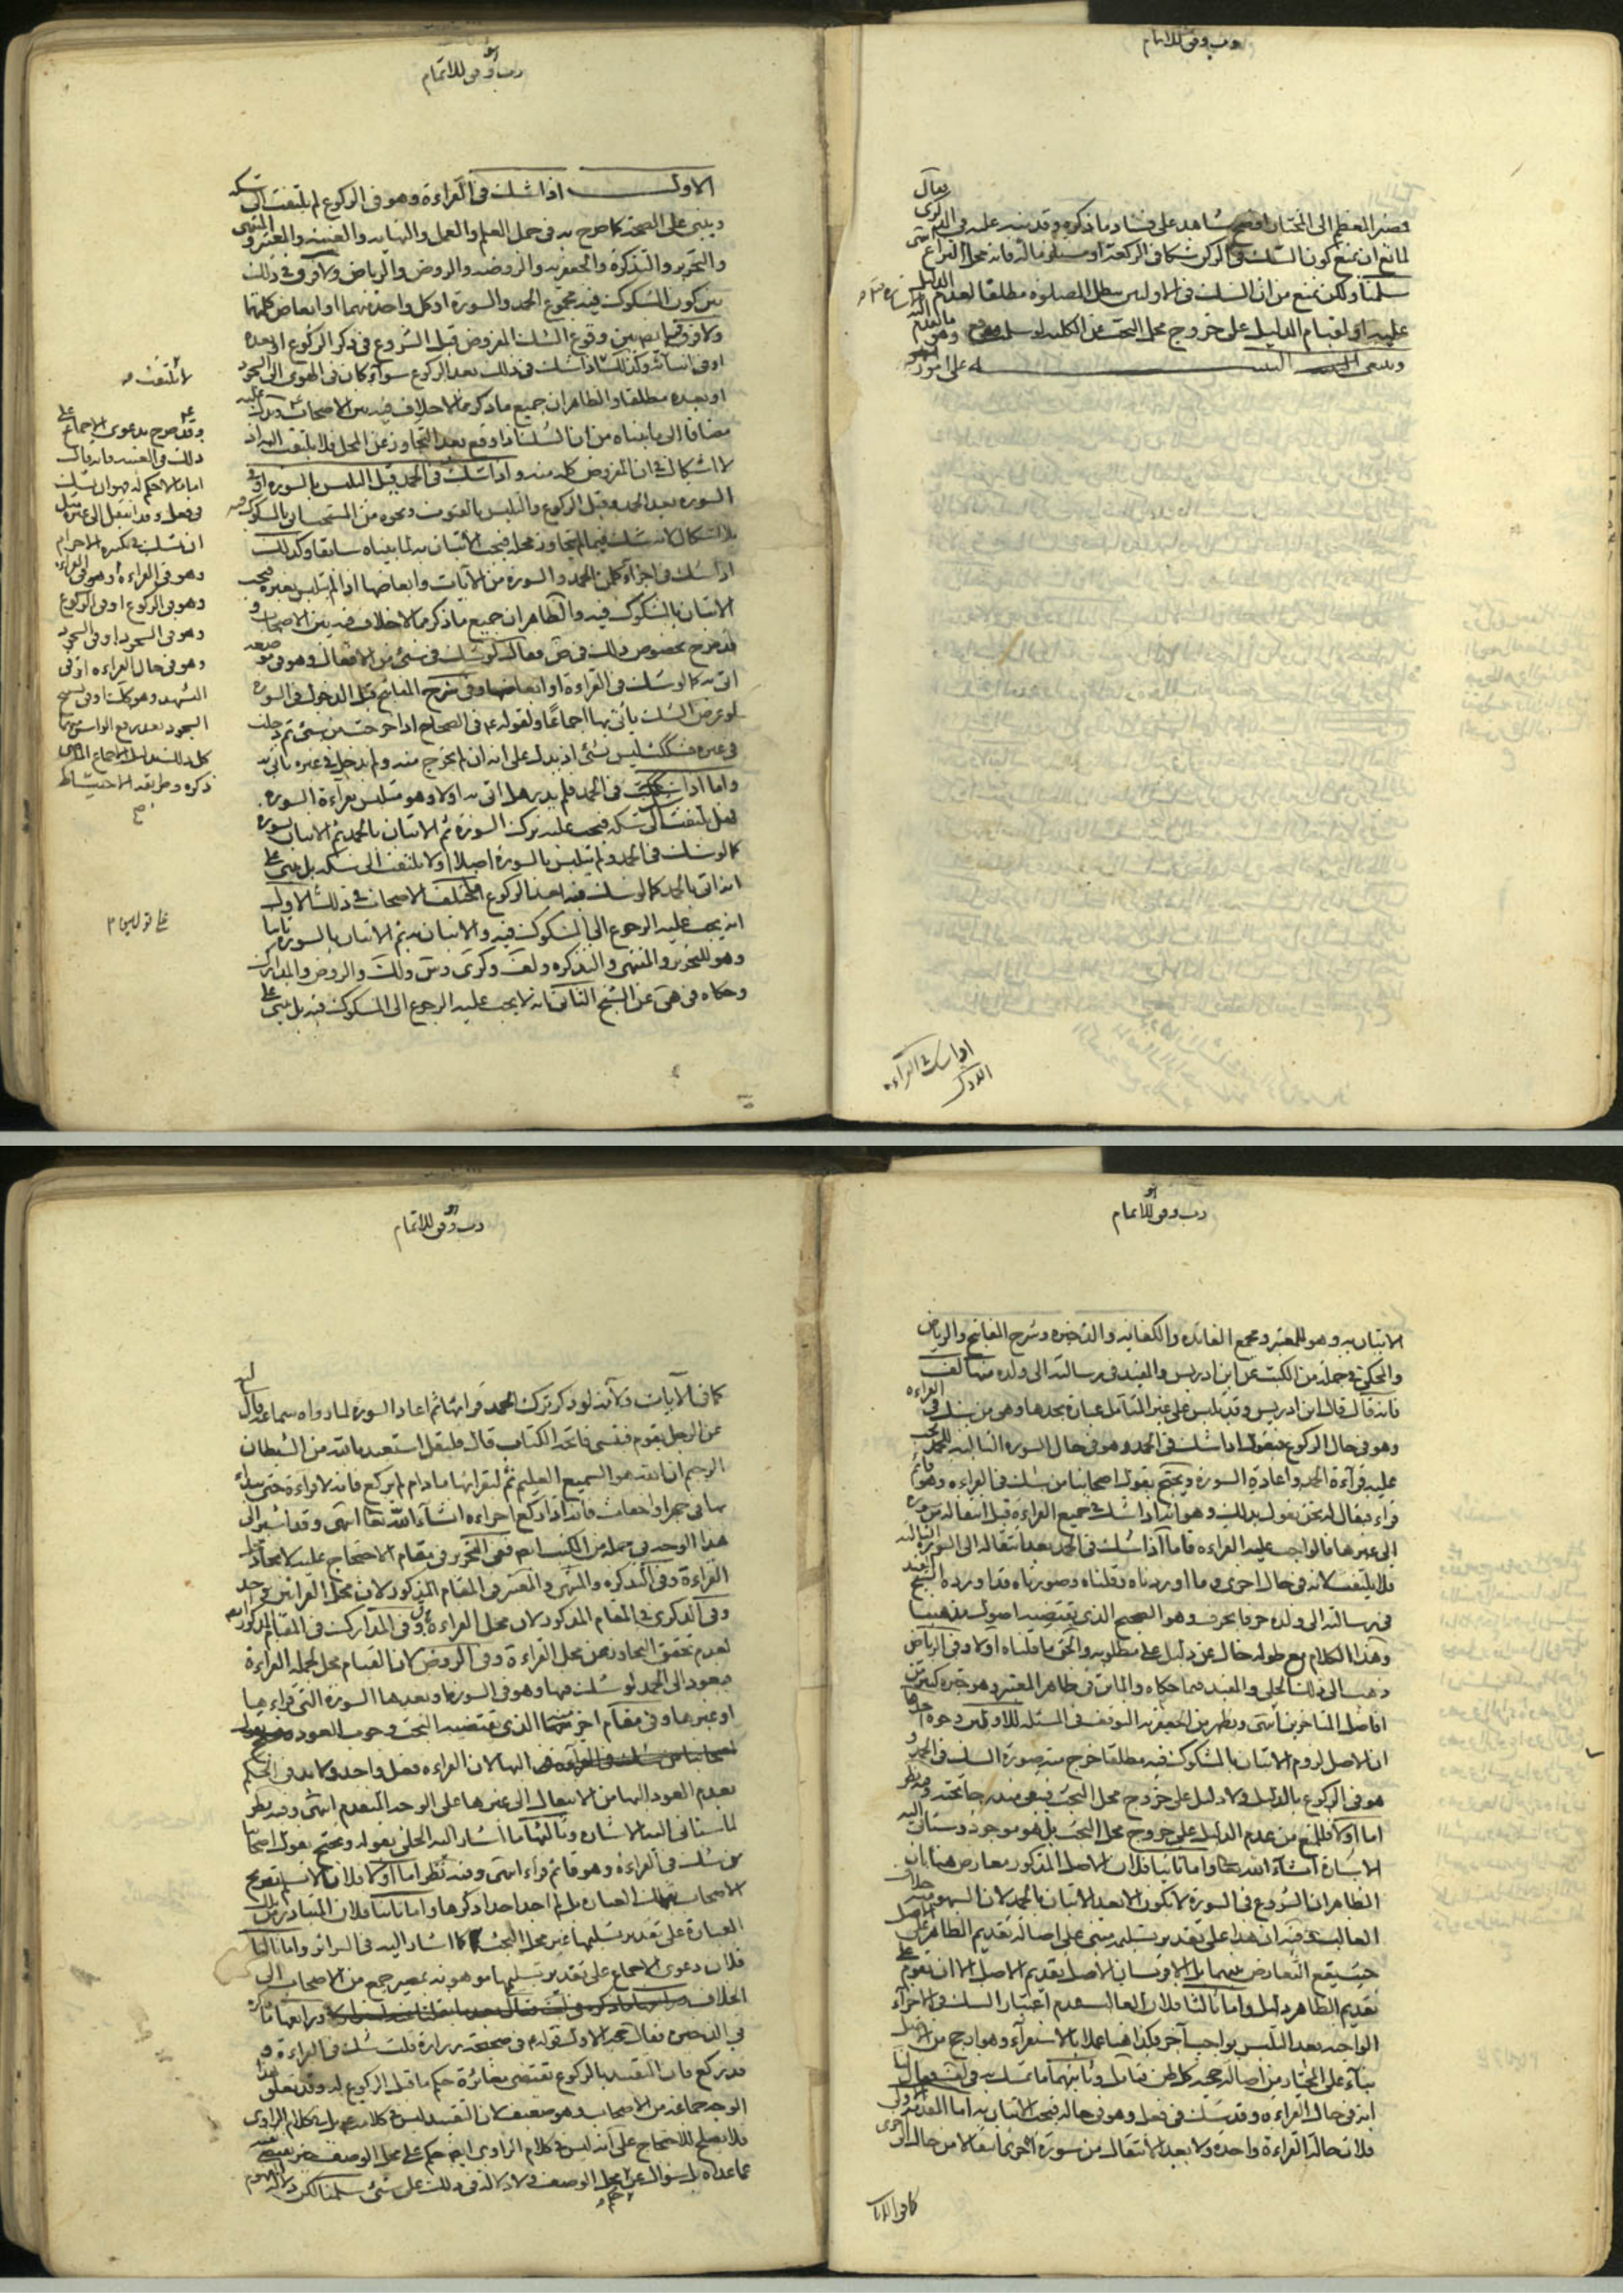 رب وفق للاتمام
فصر العظم الى المختار
لمانع ان نمنع كون الشك في الركن شكا في الركعة او مبطلا فانه محل النزاع
سلمنا ولكن نمنع من ان الشك في الاوليين مبطل للصلوة مطلقا لعدم الدليل
عليه او لقيام الدليل على خروج محل البحث من الكلية
على امور
اذا شك في القراءة
هو
رب وفق للاتمام
الاول اذا شك في القراءة وهو في الركوع لم يلتفت الى شكه
ويبنى على الصحة كما صرح به في جمل العلم والعمل والنهاية والغنية والمعتبر والمنتهى
والتحرير والتذكرة والجعفرية والروضة والروض والرياض ولا فرق في ذلك
بين كون المشكوك فيه مجموع الحمد والسورة او كل واحدة منهما او ابعاض كلماتها
ولا فرق ايضا بين وقوع الشك المفروض قبل الشروع في ذكر الركوع او بعده
او في اثنائه وكذلك اذا شك في ذلك بعد الركوع سواء كان في الهوي الى السجود
او بعده مطلقا والظاهر ان جميع ما ذكر مما لا خلاف فيه بين الاصحاب ويدل عليه
مضافا الى ما بيناه من ان الشك اذا وقع بعد التجاوز عن المحل فلا يلتفت اليه اذ
لا اشكال في ان المفروض كله منه واذا شك في الحمد قبل التلبس بالسورة او في
السورة بعد الحمد وقبل الركوع والتلبس بالقنوت ونحوه من المستحبات
بلا اشكال لانه شك فيما لم يتجاوز محله فيجب الاتيان به لما بيناه سابقا وكذلك
اذا شك في اجزاء كل من الحمد والسورة من الآيات وابعاضها اذا لم يتلبس بغيره فيجب
الاتيان بالمشكوك فيه والظاهر ان جميع ما ذكر مما لا خلاف فيه بين الاصحاب و
قد صرح بخصوص ذلك في ض فقال لو شك في شيء من الافعال وهو في موضعه
اتى به كما لو شك في القراءة او ابعاضها وفي شرح المفاتيح قبل الدخول في السورة
لو عرض الشك يأتي بها اجماعا ولقوله ع في الصحاح اذا خرجت من شيء ثم دخلت
في غيره فشكك ليس بشيء اذ يدل على انه ان لم يخرج منه ولم يدخل في غيره يأتي به
واما اذا شك في الحمد فلم يدر هل اتى به اولا وهو متلبس بقراءة السورة
فهل يلتفت الى شكه فيجب عليه ترك السورة ثم الاتيان بالحمد ثم الاتيان بسورة
كما لو شك في الحمد ولم يتلبس بالسورة اصلا او لا يلتفت الى شكه بل يبنى على
انه اتى بالحمد كما لو شك فيه بعد الركوع اختلف الاصحاب في ذلك على قولين الاول
انه يجب عليه الرجوع الى المشكوك فيه والاتيان به ثم الاتيان بالسورة ثانيا
وهو للتحرير والمنتهى والتذكرة
وحكاه في هى عن الشيخ الثاني انه لا يجب عليه الرجوع الى المشكوك فيه بل يبنى على
لا يلتفت
وقد صرح بدعوى الاجماع على
ذلك في الغنية فانه قال
اما ما لا حكم له فهو ان يشك
في فعل وقد انتقل الى غيره مثل
ان يشك في تكبيرة الاحرام
وهو في القراءة او في القراءة
وهو في الركوع او في الركوع
وهو في السجود او في السجود
وهو في حال القراءة او في
التشهد وهو كذلك او في تسبيح
السجود بعد رفع الراس منهما
كل ذلك بدليل الاجماع الماضي
ذكره وطريقة الاحتياط
على قولين
هو
رب وفق للاتمام
الاتيان به وهو للمعتبر ومجمع الفائدة والكفاية والذخيرة وشرح المفاتيح والرياض
والمحكي في جملة من الكتب عن ابن ادريس والمفيد في رسالته الى ولده
فانه قال قال ابن ادريس وقد يلتبس على غير المتأمل عبارة يجدها وهي من شك في القراءة
وهو في حال الركوع فيقول اذا شك في الحمد وهو في حال السورة التالية للحمد يجب
عليه قراءة الحمد واعادة السورة ويحتج بقول اصحابنا من شك في القراءة وهو قائم
قرأ فيقال له نحن نقول بذلك وهو انه اذا شك في جميع القراءة قبل انتقاله من سورة
الى غيرها فالواجب عليه القراءة فاما اذا شك في الحمد بعد انتقاله الى السورة التالية
فلا يلتفت لانه في حال اخرى وما اوردناه وقلناه وصورناه قد اورده الشيخ المفيد
في رسالته الى ولده حرفا بحرف وهو الصحيح الذي يقتضيه اصول مذهبنا
وهذا الكلام مع طوله خال عن دليل على مطلوبه والحق ما قلناه اولا وفي الرياض
ذهب الى ذلك الحلي والمفيد فيما حكاه والماتن في ظاهر المعتبر وهو خيرة كثير من
افاضل المتاخرين انتهى ويظهر من الجعفرية التوقف في المسئلة للاولين وجوه احدها
ان الاصل لزوم الاتيان بالمشكوك فيه مطلقا خرج منه صورة الشك في الحمد و
هو في الركوع بالدليل ولا دليل على خروج محل البحث فيبقى مندرجا تحته وفيه نظر
اما اولا فللمنع من عدم الدليل على خروج محل البحث بل هو موجود وستاتي اليه
الاشارة انشاء الله تعالى واما ثانيا فلان الاصل المذكور معارض هنا بان
الظاهر ان الشروع في السورة لا يكون الا بعد الاتيان بالحمد لان السهو خلاف
الغالب وفيه ان هذا على تقدير تسليمه مبنى على اصالة تقديم الظاهر على الاصل
حيث يقع التعارض بينهما
تقديم الظاهر دليل واما ثالثا فلان الغالب عدم اعتبار الشك في الاجزاء
الواجبة بعد التلبس بواجب آخر فكذا هنا عملا بالاستقراء وهو ارجح من الاصل
بناء على المختار من اصالة حجية كل ظن
انه في حال القراءة وقد شك في فعل وهو في حاله فيجب الاتيان به اما المقدمة الاولى
فلان حالة القراءة واحدة ولا يعد الانتقال من سورة الى اخرى انتقالا من حال الى اخرى
كما في الآيات
هو
رب وفق للاتمام
كما في الآيات ولانه لو ذكر ترك الحمد قرأها ثم اعاد السورة لما رواه سماعة قال
عن الرجل يقوم فينسى فاتحة الكتاب قال فليقل استعيذ بالله من الشيطان
الرجيم ان الله هو السميع العليم ثم ليقرأها ما دام لم يركع فانه لا قراءة حتى يبدأ
بها في جهر او اخفات فانه اذا ركع اجزاه انشاء الله تعالى انتهى وقد اشير الى
هذا الوجه في جملة من الكتب ففي التحرير في مقام الاحتجاج عليه لاتحاد محل
القراءة وفي التذكرة والمنتهى والمعتبر في المقام المذكور لان محل القراءتين واحد
وفي الذكرى في المقام المذكور لان محل القراءة وفي المدارك في المقام المذكور
لعدم تحقق التجاوز عن محل القراءة وفي الروض لان القيام محل لجملة القراءة
فيعود الى الحمد لو شك فيها وهو في السورة او بعدها السورة التي قراءها
او غيرها وفي مقام اخر منها الذي يقتضيه البحث وجوب العود
اليها لان القراءة فعل واحد ولا بد في الحكم
بعدم العود اليها من الانتقال الى غيرها على الوجه المتقدم انتهى وفيه نظر
لما ستاتي اليه الاشارة وثالثها ما اشار اليه الحلي بقوله ويحتج بقول اصحابنا
من شك في القراءة وهو قائم قرأ انتهى وفيه نظر اما اولا فلانا لا نسلم تصريح
الاصحاب بتلك العبارة بل لم اجد احدا ذكرها واما ثانيا فلان المتبادر من تلك
العبارة على تقدير تسليمها غير محل البحث كما اشار اليه في السرائر واما ثالثا
فلان دعوى الاجماع على تقدير تسليمها موهونة بمصير جمع من الاصحاب الى
الخلاف ورابعها ما ذكره
في الذخيرة فقال حجة الاول قوله ع في صحيحة زرارة قلت شك في القراءة و
قد ركع فان التقييد بالركوع يقتضي مغايرة حكم ما قبل الركوع له وقد تعلق بهذا
الوجه جماعة من الاصحاب وهو ضعيف لان التقييد ليس في كلامه ع بل في كلام الراوي
فلا يصلح للاحتجاج على انه ليس في كلام الراوي ايضا حكم على محل الوصف
عما عداه بل سؤال عن حكم محل الوصف ولا دلالة في ذلك على شيء سلمنا لكن دلالة المفهوم